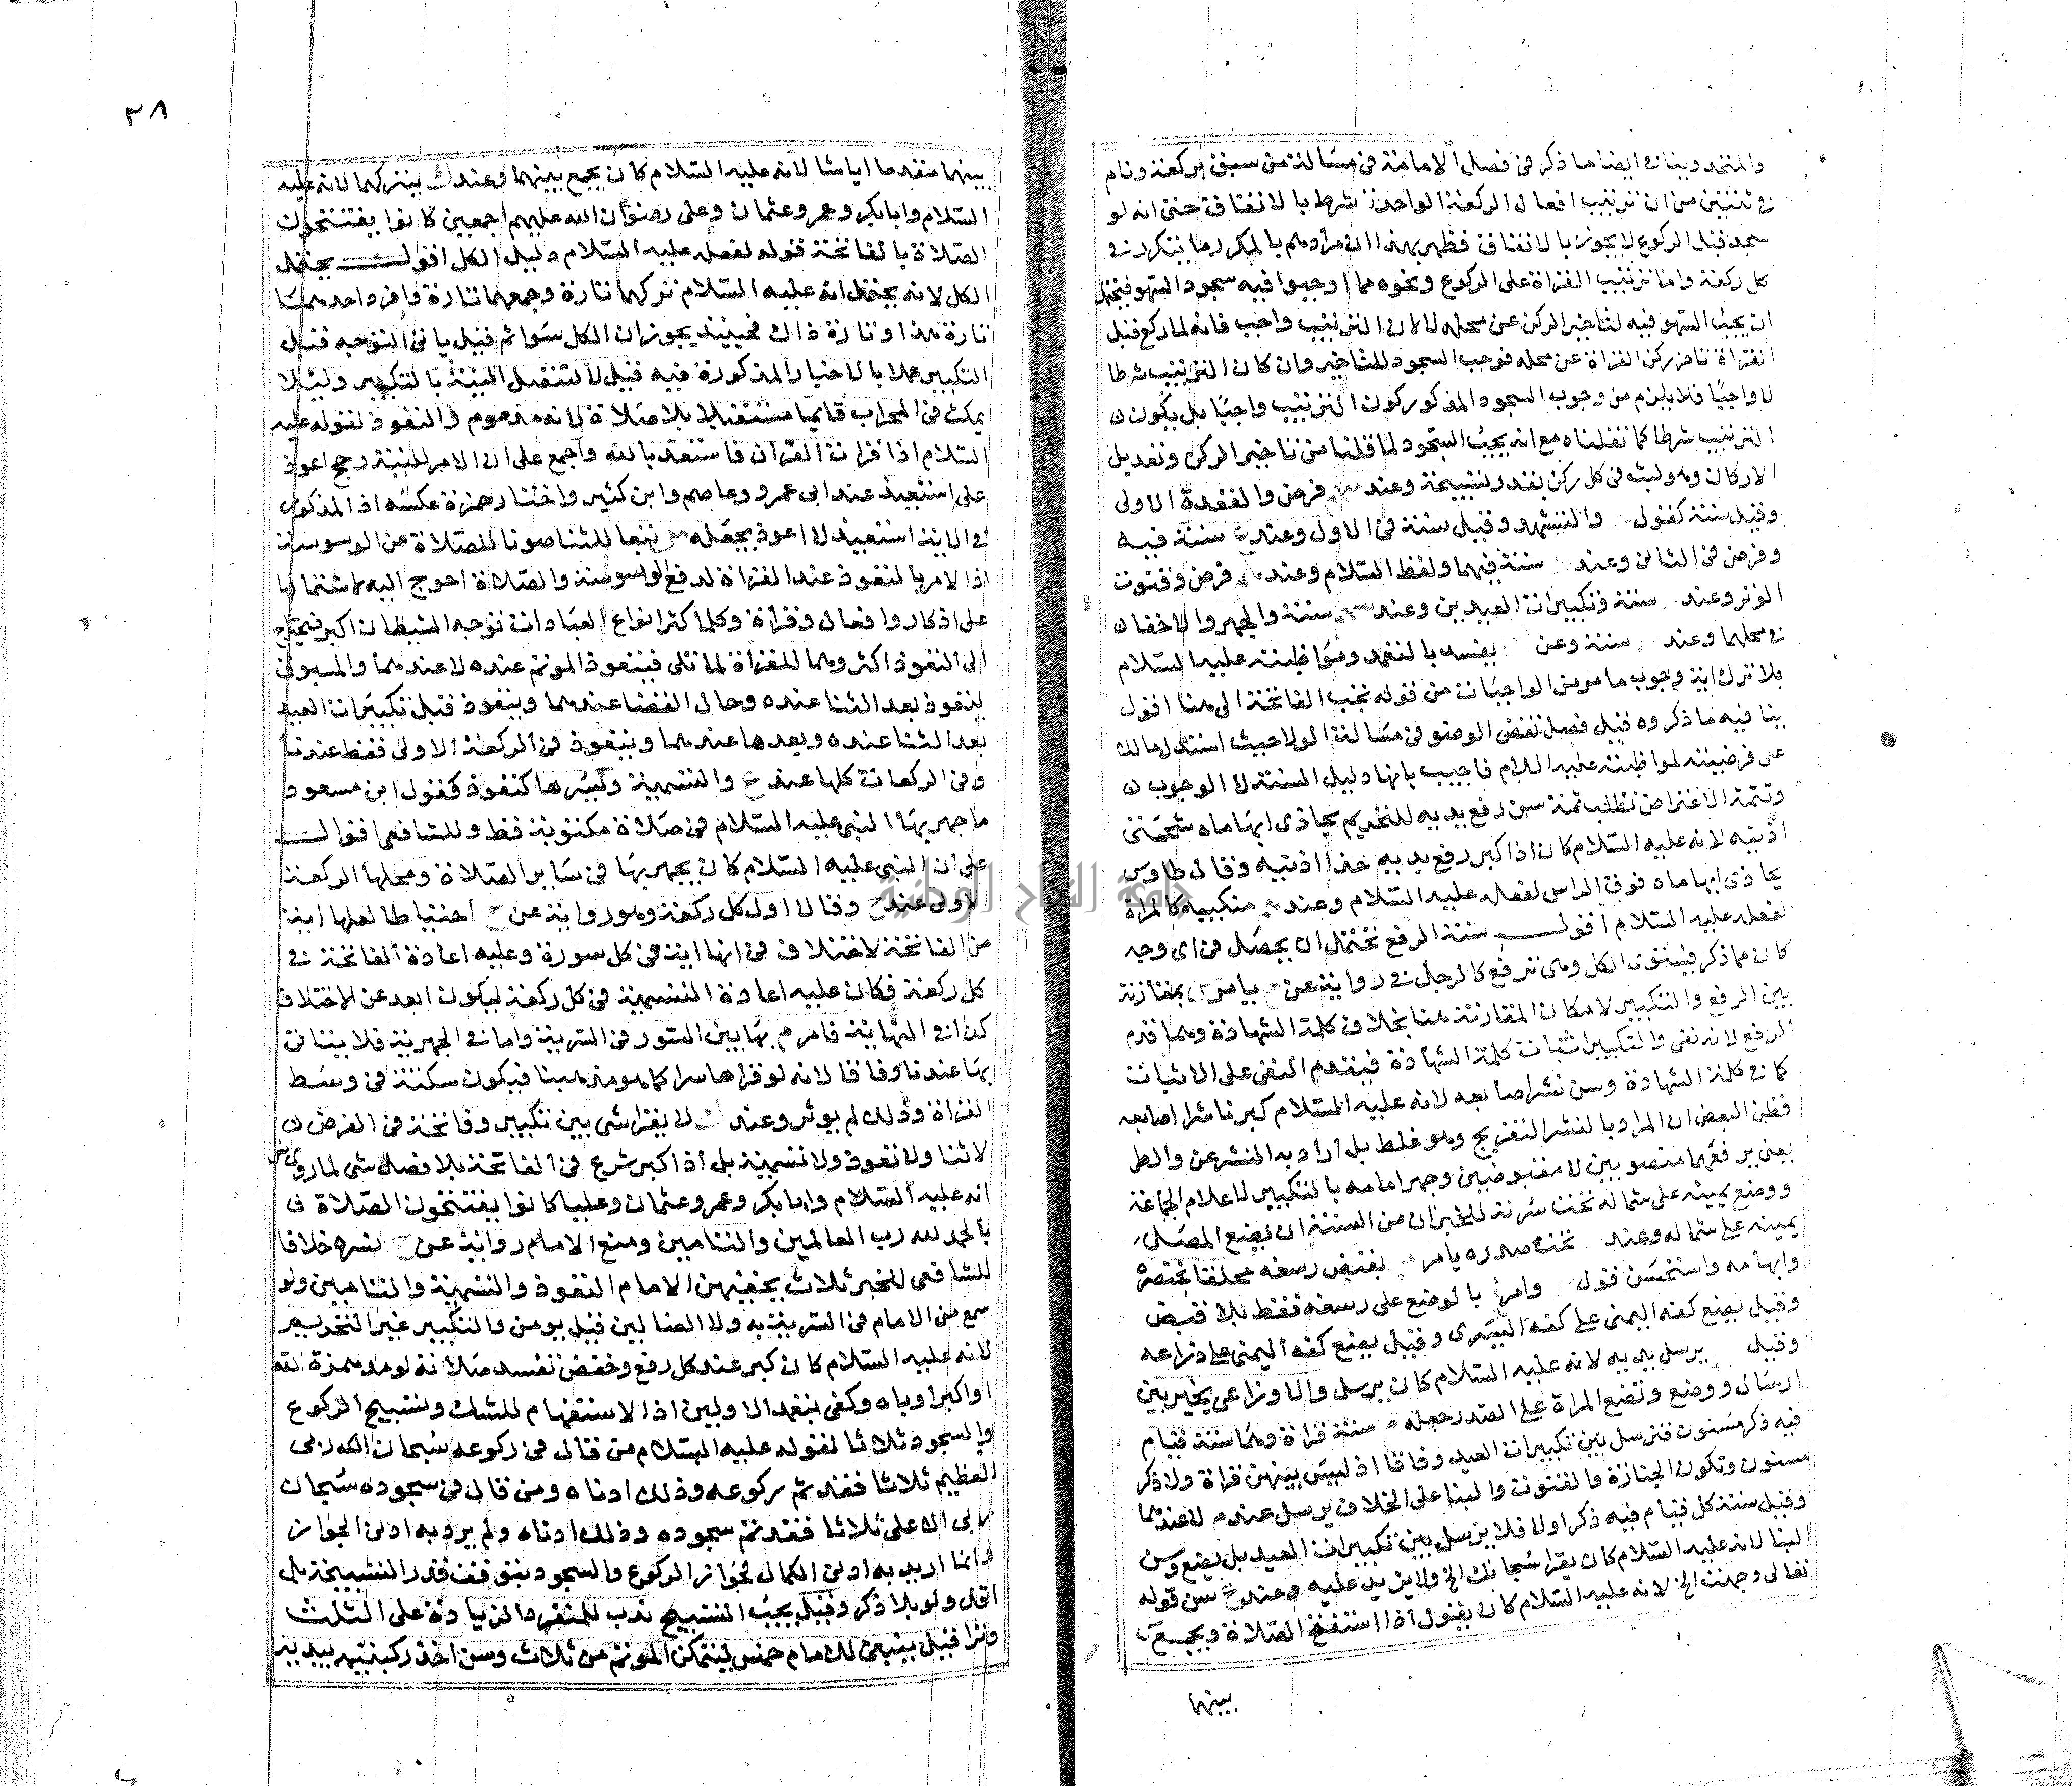 والمتحد وينافى ايضا ما ذكر فى فصل الامامة فى مسالة من سبق بركعة ونام
فى ثنتين من ان ترتيب افعال الركعة الواحدة شرط بالاتفاق حتى انه لو
سجد قبل الركوع لا يجوز بالاتفاق فظهر بهذا ان مرادهم بالمكرر ما يتكرر فى
كل ركعة واما ترتيب القراة على الركوع ونحوه مما اوجبوا فيه سجود السهو فيحتمل
ان يجب السهو فيه لتاخير الركن عن محله لا لان الترتيب واجب فانه لما ركع قبل
القراة تاخر ركن القراة عن محله فوجب السجود للتاخير وان كان الترتيب شرطا
لا واجبًا فلا يلزم من وجوب السجود المذكور كون الترتيب واجبًا بل يكون
الترتيب شرطا كما نقلناه مع انه يجب السجود لما قلنا من تاخير الركن وتعديل
الاركان وهو لبث فى كل ركن بقدر تسبيحة وعند فرض والقعدة الاولى
وقيل سنة كقول والتشهد وقيل سنة فى الاول وعند سنة فيه
وفرض فى الثانى وعند سنة فيهما ولفظ السلام وعند فرض وقنوت
الوتر وعند سنة وتكبيرات العيدين وعند سنة والجهر والاخفا
فى محلهما وعند سنة وعن يفسد بالتعمد ومواظبته عليه السلام
بلا ترك اية وجوب ما مر من الواجبات من قوله تجب الفاتحة الى هنا اقول
ينافيه ما ذكروه قبيل فصل نقض الوضو فى مسالة الولا حيث استدل مالك
على فرضيته لمواظبته عليه السلام فاجيب بانها دليل السنة لا الوجوب
وتتمة الاعتراض تطلب ثمة سن رفع يديه للتحريم يحاذى ابهاماه شحمتى
اذنيه لانه عليه السلام كان اذا كبر رفع يديه حذا اذنيه وقال طاوس
يحاذى ابهاماه فوق الراس لفعله عليه السلام وعند منكبيه كالمراة
لفعله عليه السلام اقول سنة الرفع تحتمل ان يحصل فى اى وجه
كان مما ذكر فيستوى الكل وهى ترفع كالرجل فى رواية عن يامر بمقارنة
بين الرفع والتكبير لامكان المقارنة هنا بخلاف كلمة الشهادة وهما قدم
الرفع لانه نفى والتكبير اثبات كلمة الشهادة فيقدم النفى على الاثبات
كما فى كلمة الشهادة وسن نشر اصابعه لانه عليه السلام كبر ناشرا اصابعه
فظن البعض ان المراد بالنشر التفريج وهو غلط بل اراد به النشر عن والطى
يعنى يرفعهما منصوبين لا مقبوضين وجهر امامه بالتكبير لاعلام الجماعة
ووضع يمينه على شماله تحت سرته للخبر ان من السنة ان يضع المصلى
يمينه على شماله وعند تحت صدره يامر بقبض رسغه محلقا بخنصره
وابهامه واستحسن قول وامر بالوضع على رسغه فقط بلا قبض
وقيل يضع كفه اليمنى على كفه اليسرى وقيل يضع كفه اليمنى على ذراعه
وقيل يرسل يديه لانه عليه السلام كان يرسل والاوزاعى يخير بين
ارسال ووضع وتضع المراة على الصدر جعله سنة قراة وهما سنة قيام
فيه ذكر مسنون فترسل بين تكبيرات العيد وفاقا اذ ليس بينهن قراة ولا ذكر
مسنون وتكون الجنازة والقنوت والبنا على الخلاف يرسل عند لا عندهما
وقيل سنة كل قيام فيه ذكر اولا فلا يرسل بين تكبيرات العيد بل يضع وسن
الثنا لانه عليه السلام كان يقرا سبحانك الخ ولا يزيد عليه وعند سن قوله
تعالى وجهت الخ لانه عليه السلام كان يقول اذا استفتح الصلاة ويجمع
بينهما
٢٨
بينهما مقدما ايا شا لانه عليه السلام كان يجمع بينهما وعند ك يتركهما لانه عليه
السلام وابا بكر وعمر وعثمان وعلى رضوان الله عليهم اجمعين كانوا يفتتحون
الصلاة بالفاتحة قوله لفعله عليه السلام دليل الكل اقول يحتمل
الكل لانه يحتمل انه عليه السلام تركهما تارة وجمعهما تارة وافرد احدهما
تارة هذا وتارة ذاك فحينئذ يجوز ان الكل سوا ثم قيل ياتى التوجه قبل
التكبير عملا بالاخبار المذكورة فيه قيل لا لتتصل النية بالتكبير وليلا
يمكث فى المحراب قايما مستقبلا بلا صلاة لانه مذموم والتعوذ لقوله عليه
السلام اذا قرات القران فاستعذ بالله واجمع على ان الامر للسنة رجح اعوذ
على استعيذ عند ابى عمرو وعاصم وابن كثير واختار حمزة عكسه اذ المذكور
فى الاية استعيذ لا اعوذ يجعله تبعا للثنا صونا للصلاة عن الوسوسة
اذ الامر بالتعوذ عند القراة لدفع الوسوسة والصلاة احوج اليه لاشتمالها
على اذكار وافعال وقراة وكلما كثر انواع العبادات توجه الشيطان اكبر فيحتاج
الى التعوذ اكثر وهما للقراة لما تلى فيتعوذ الموتم عنده لا عندهما والمسبوق
يتعوذ بعد الثنا عنده وحال القضا عندهما ويتعوذ قبل تكبيرات العيد
بعد الثنا عنده وبعدها عندهما ويتعوذ فى الركعة الاولى فقط عندنا
وفى الركعات كلها عند ع والتسمية وتسرها كتعوذ كقول ابن مسعود
ما جهر بها النبى عليه السلام فى صلاة مكتوبة قط وللشافعى اقوال
على ان النبى عليه السلام كان يجهر بها فى ساير الصلاة ومحلها الركعة
الاولى عند ح وقالا اول كل ركعة وهو رواية عن ح احتياطا لعلها اية
من الفاتحة لاختلاف فى انها اية فى كل سورة وعليه اعادة الفاتحة فى
كل ركعة فكان عليه اعادة التسمية فى كل ركعة ليكون ابعد عن الاختلاف
كذا فى النهاية فامر م بها بين السور فى السرية واما فى الجهرية فلا يتاتى
بها عندنا وفاقا لانه لو قراها سرا كما هو مذهبنا فيكون سكتة فى وسط
القراة وذلك لم يوثر وعند ك لا يقرا شى بين تكبير وفاتحة فى الفرض
لا ثنا ولا تعوذ ولا تسمية بل اذا كبر شرع فى الفاتحة بلا فصل شى لما روى
انه عليه السلام وابا بكر وعمر وعثمان وعليا كانوا يفتتحون الصلاة
بالحمد لله رب العالمين والتامين ومنع الامام رواية عن ح لسره خلافا
للشافعى للخبر ثلاث يخفيهن الامام التعوذ والتسمية والتامين ولو
سمع من الامام فى السرية به ولا الضالين قيل يومن والتكبير غير التحريم
لانه عليه السلام كان كبر عند كل رفع وخفض تفسد صلاته لو مد همزة الله
او اكبر او باه وكفر بتعمد الاولين اذ الاستفهام للشك وتسبيح الركوع
والسجود ثلاثا لقوله عليه السلام من قال فى ركوعه سبحان الله ربى
العظيم ثلاثا فقد تم ركوعه وذلك ادناه ومن قال فى سجوده سبحان
ربى الاعلى ثلاثا فقد تم سجوده وذلك ادناه ولم يرد به ادنى الجواز
وانما اريد به ادنى الكمال لجواز الركوع والسجود بتوقف قدر التسبيحة بل
اقل ولو بلا ذكر وقيل يجب التسبيح ندب للمنفرد الزيادة على الثلث
وترا قيل ينبغى للامام خمس ليتمكن الموتم من ثلاث وسن اخذ ركبتيه بيديه
جامعة النجاح الوطنية